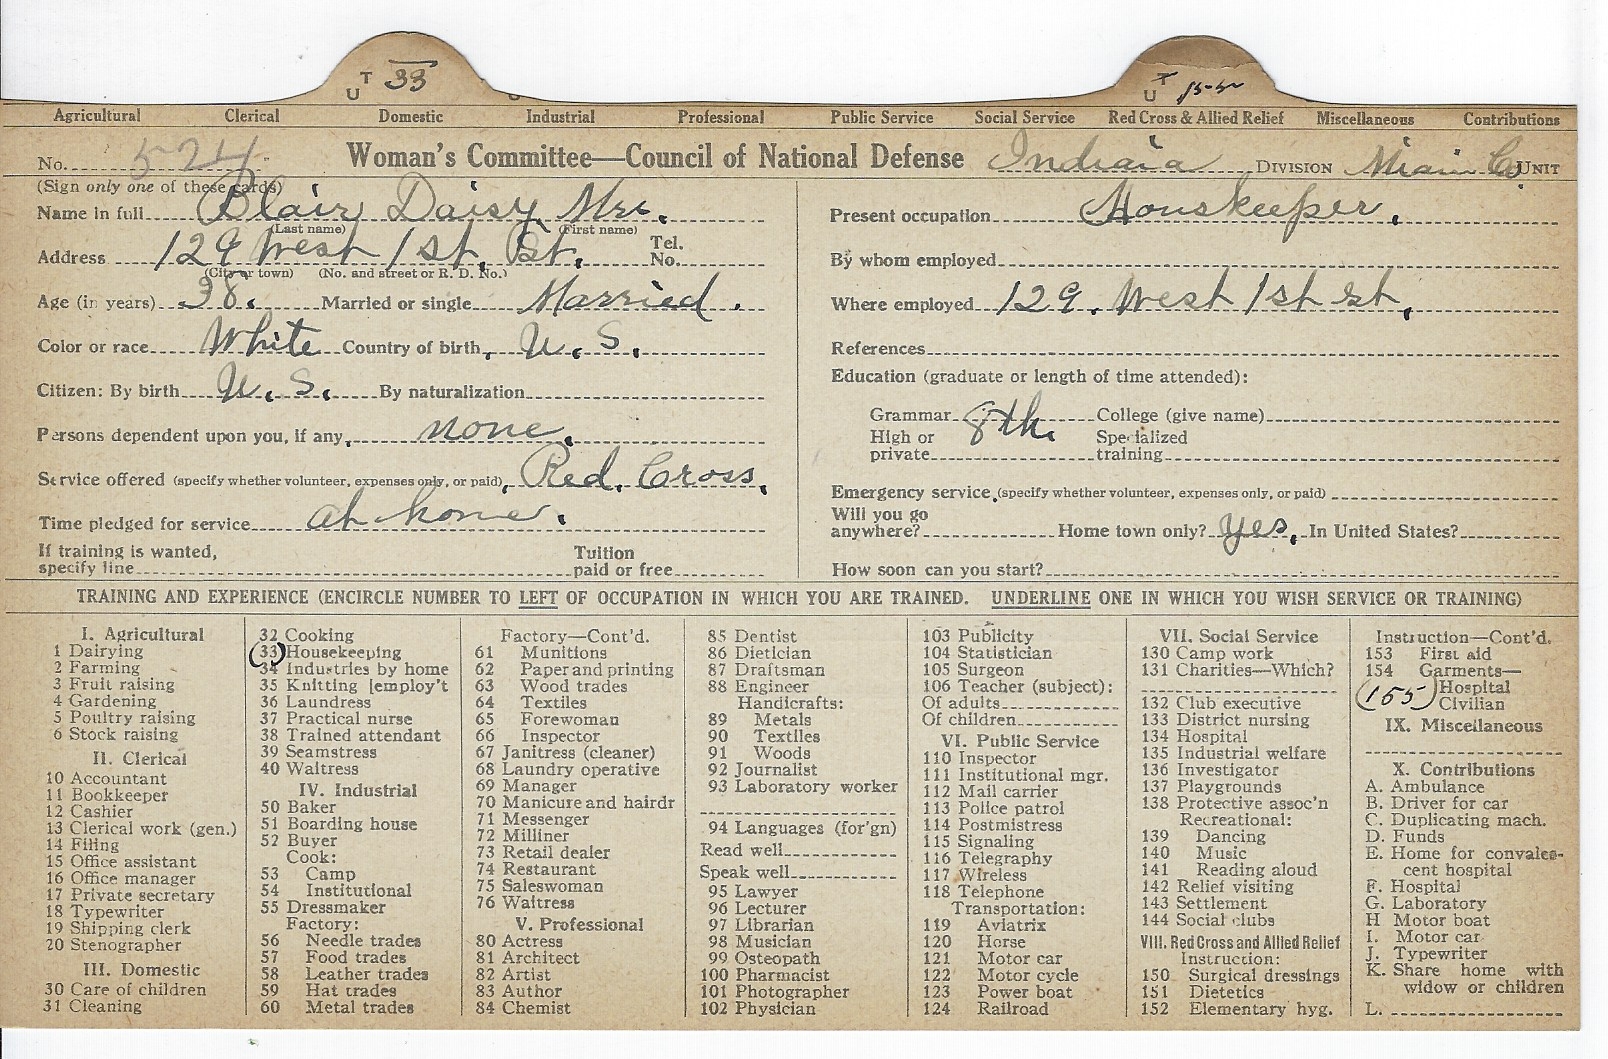 T U 33
T U
Agricultural Clerical Domestic Industrial Professional Public Service Social Service Red Cross & Allied Relief Miscellaneous Contributions
No. 524 Woman's Committee—Council of National Defense Indiaia DIVISION Miami Co. UNIT
(Sign only one of these cards)
Name in full Blair Daisy Mrs.
(Last name) (First name)
Address 129 West 1st. St. Tel. No.
(City or town) (No. and street or R. D. No.)
Age (in years) 38. Married or single Married.
Color or race White Country of birth U. S.
Citizen: By birth U. S. By naturalization
Persons dependent upon you, if any none.
Service offered (specify whether volunteer, expenses only, or paid) Red. Cross.
Time pledged for service at home.
If training is wanted, specify line Tuition paid or free
Present occupation Houskeeper.
By whom employed
Where employed 129. West 1st st.
References
Education (graduate or length of time attended):
Grammar 8th. College (give name)
High or private Specialized training
Emergency service (specify whether volunteer, expenses only, or paid)
Will you go anywhere? Home town only? yes. In United States?
How soon can you start?
TRAINING AND EXPERIENCE (ENCIRCLE NUMBER TO LEFT OF OCCUPATION IN WHICH YOU ARE TRAINED. UNDERLINE ONE IN WHICH YOU WISH SERVICE OR TRAINING)
I. Agricultural
1 Dairying
2 Farming
3 Fruit raising
4 Gardening
5 Poultry raising
6 Stock raising
II. Clerical
10 Accountant
11 Bookkeeper
12 Cashier
13 Clerical work (gen.)
14 Filing
15 Office assistant
16 Office manager
17 Private secretary
18 Typewriter
19 Shipping clerk
20 Stenographer
III. Domestic
30 Care of children
31 Cleaning
32 Cooking
33 Housekeeping
34 Industries by home
35 Knitting [employ't
36 Laundress
37 Practical nurse
38 Trained attendant
39 Seamstress
40 Waitress
IV. Industrial
50 Baker
51 Boarding house
52 Buyer
Cook:
53 Camp
54 Institutional
55 Dressmaker
Factory:
56 Needle trades
57 Food trades
58 Leather trades
59 Hat trades
60 Metal trades
Factory—Cont'd.
61 Munitions
62 Paper and printing
63 Wood trades
64 Textiles
65 Forewoman
66 Inspector
67 Janitress (cleaner)
68 Laundry operative
69 Manager
70 Manicure and hairdr
71 Messenger
72 Milliner
73 Retail dealer
74 Restaurant
75 Saleswoman
76 Waitress
V. Professional
80 Actress
81 Architect
82 Artist
83 Author
84 Chemist
85 Dentist
86 Dietician
87 Draftsman
88 Engineer
Handicrafts:
89 Metals
90 Textiles
91 Woods
92 Journalist
93 Laboratory worker
94 Languages (for'gn)
Read well
Speak well
95 Lawyer
96 Lecturer
97 Librarian
98 Musician
99 Osteopath
100 Pharmacist
101 Photographer
102 Physician
103 Publicity
104 Statistician
105 Surgeon
106 Teacher (subject):
Of adults
Of children
VI. Public Service
110 Inspector
111 Institutional mgr.
112 Mail carrier
113 Police patrol
114 Postmistress
115 Signaling
116 Telegraphy
117 Wireless
118 Telephone
Transportation:
119 Aviatrix
120 Horse
121 Motor car
122 Motor cycle
123 Power boat
124 Railroad
VII. Social Service
130 Camp work
131 Charities—Which?
132 Club executive
133 District nursing
134 Hospital
135 Industrial welfare
136 Investigator
137 Playgrounds
138 Protective assoc'n
Recreational:
139 Dancing
140 Music
141 Reading aloud
142 Relief visiting
143 Settlement
144 Social clubs
VIII. Red Cross and Allied Relief
Instruction:
150 Surgical dressings
151 Dietetics
152 Elementary hyg.
Instruction—Cont'd.
153 First aid
154 Garments—
Hospital
155 Civilian
IX. Miscellaneous
X. Contributions
A. Ambulance
B. Driver for car
C. Duplicating mach.
D. Funds
E. Home for convales-
cent hospital
F. Hospital
G. Laboratory
H Motor boat
I. Motor car
J. Typewriter
K. Share home with
widow or children
L.